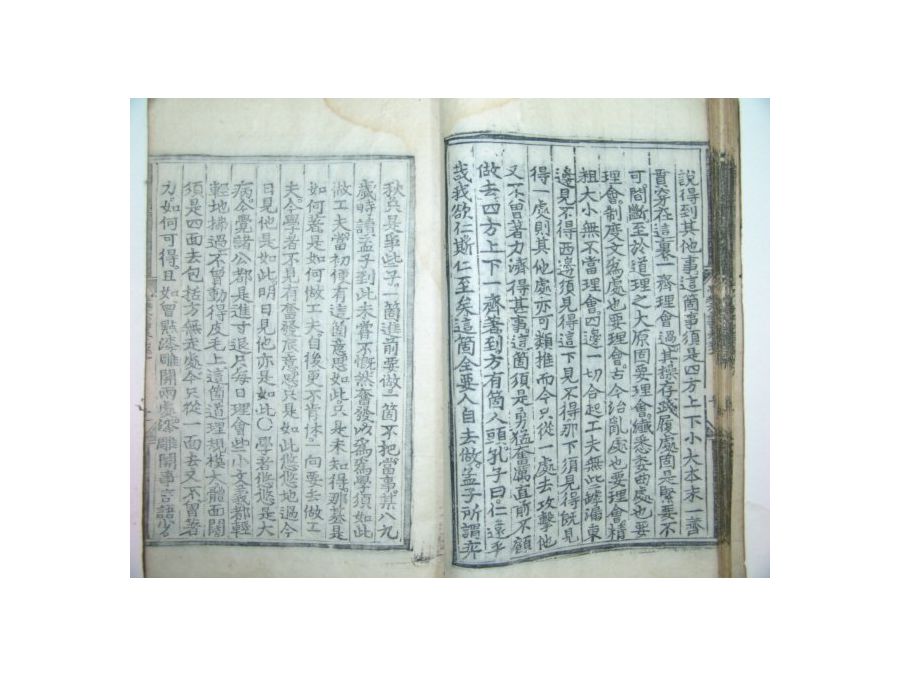 說得到其他事這箇事須是四方上下小大本末一齊
貫穿在這裏一齊理會過其操存踐履處固是緊要不
可間斷至於道理之大原固要理會纖悉委曲處也要
理會制度文爲處也要理會古今治亂處也要理會精
粗大小無不當理會四邊一切合起工夫無此罅漏東
邊見不得西邊須見得這下見不得那下須見得旣見
得一處則其他處亦可類推而今只從一處去攻擊他
又不曾著力濟得甚事這箇須是勇猛奮厲直前不顧
做去四方上下一齊著到方有箇入頭孔子曰仁遠乎
哉我欲仁斯仁至矣這箇全要人自去做孟子所謂弈
秋只是爭些子一箇進前要做一箇不把當事某八九
歲時讀孟子到此未嘗不慨然奮發以爲爲學須如此
做工夫當初便有這箇意思如此只是未知得那碁是
如何著是如何做工夫自後更不肯休一向要去做工
夫今學者不見有奮發底意思只是如此悠悠地過今
日見他是如此明日見他亦是如此○學者悠悠是大
病今覺諸公都是進寸退尺每日理會些小文義都輕
輕地拂過不曾動得皮毛上這箇道理規模大體面闊
須是四面去包括方無走處今只從一面去又不曾著
力如何可得且如曾點漆雕開兩處漆雕開事言語少